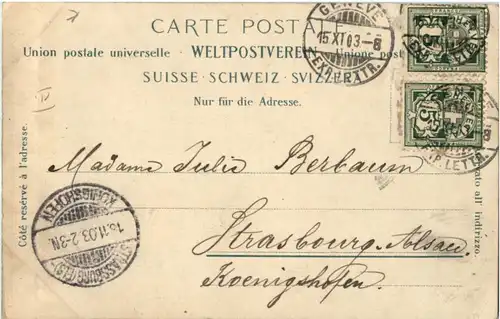 CARTE POSTALE
Union postale universelle · WELTPOSTVEREIN · Unione post
SUISSE · SCHWEIZ · SVIZZERA
Nur für die Adresse.
Côté réservé à l'adresse.
GENÈVE
15.XI.03.-8
EXP. LETTR.
5
5
EXP. LETTR.
Madame Julie Berbaum
Strasbourg-Alsace
Koenigshofen.
ato all' indirizzo.
KÖNIGSHOFEN
16.11.03.2-3N.
STRASSBURG (ELS.)